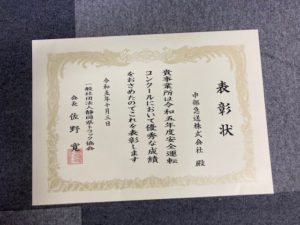 表彰状
中部急送株式会社 殿
貴事業所は令和五年度安全運転
コンクールにおいて優秀な成績
をおさめたのでこれを表彰します
令和五年十月三日
一般社団法人静岡県トラック協会
会長 佐野 寛